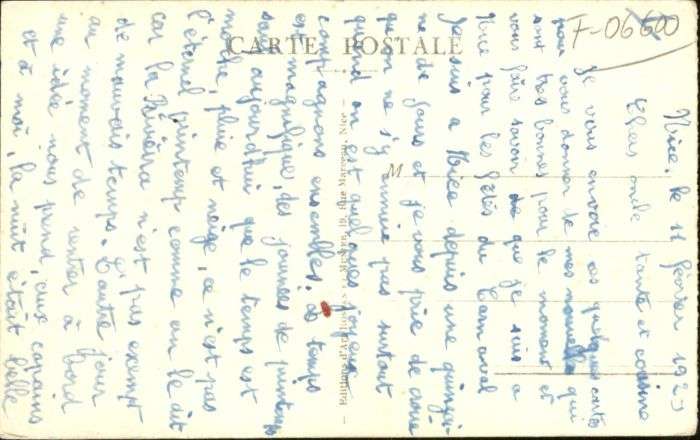 F-06600
CARTE POSTALE
M
Editions d'Art 19, Rue Marceau, Nice
Nice, le 11 février 19
Chers oncle tante et cousine
Je vous envoie ces quelques cartes
pour vous donner de mes nouvelles qui
sont très bonnes pour le moment et
vous faire savoir de que je suis a
Nice pour les fêtes du Carnaval
Je suis a Nice depuis une quinzai-
ne de jours et je vous prie de croire
qu'on ne s'y ennuie pas surtout
quand on est quelques joyeux
compagnons ensembles. Le temps
est magnifique, des journées de printemps
sauf aujourd'hui que le temps est
moche, pluie et neige, ce n'est pas
l'éternel printemps comme on le dit
car la Riviera n'est pas exempt
de mauvais temps. L'autre jour
au moment de rentrer à bord
une idée nous prend, deux copains
et à moi, la nuit était belle